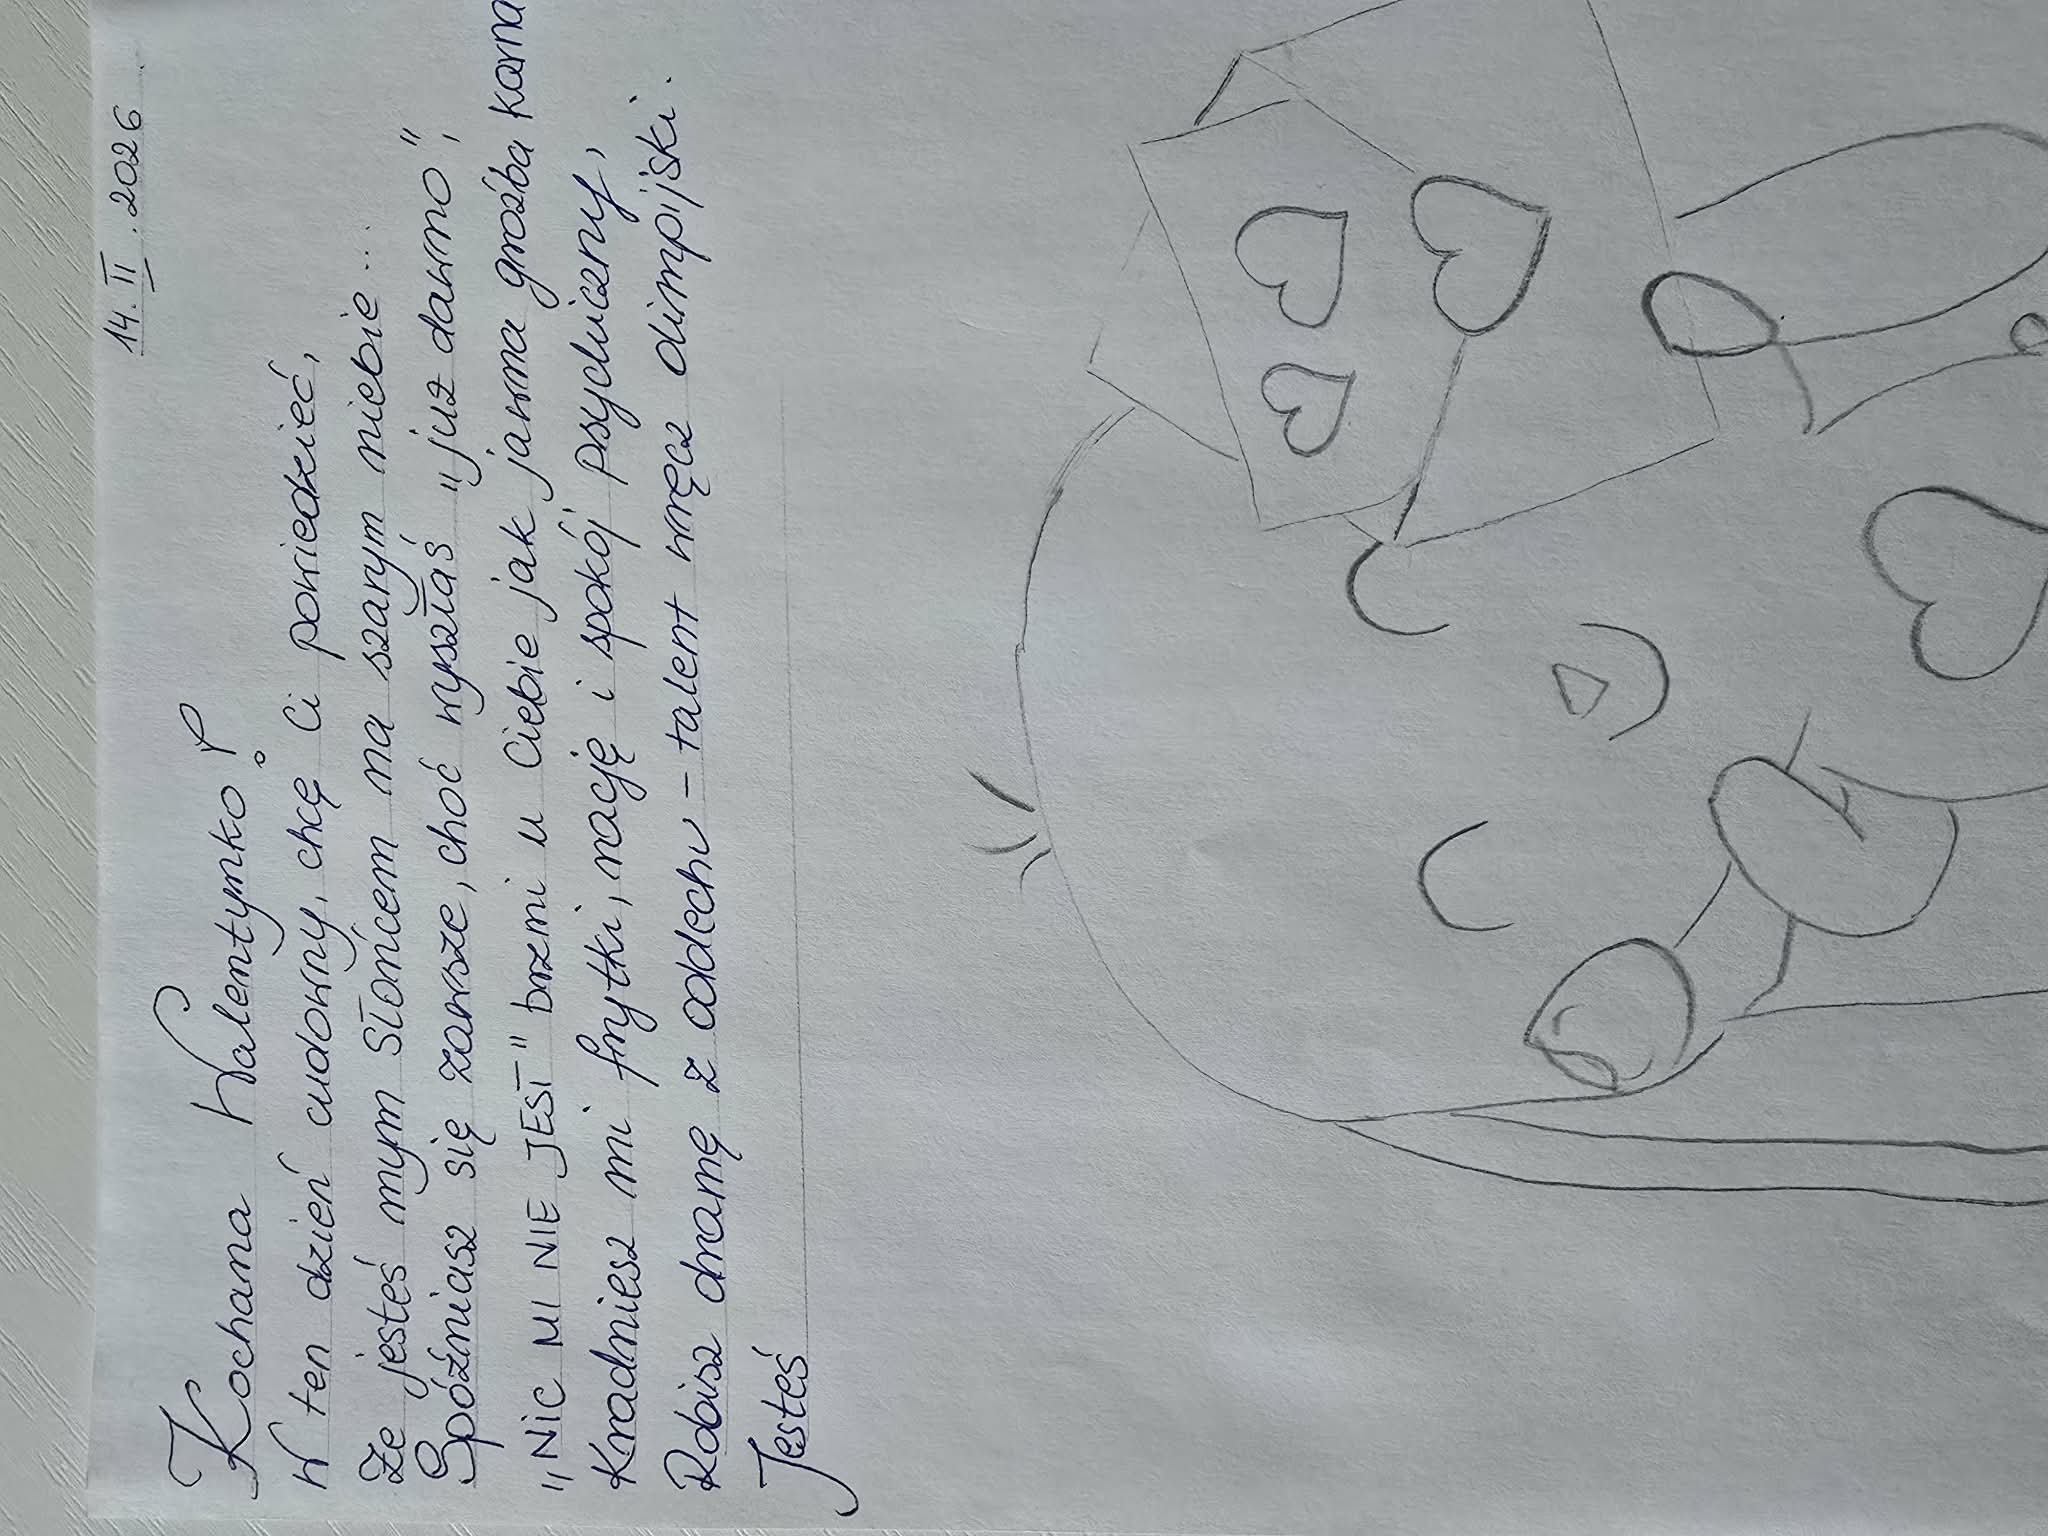 14. II. 2026
Kochana Walentynko!
W ten dzień cudowny, chcę Ci powiedzieć,
Że jesteś mym Słońcem na szarym niebie...
Spóźniasz się zawsze, choć wyszłaś "już dawno",
"NIC MI NIE JEST" brzmi u Ciebie jak jawna groźba karna
Kradniesz mi frytki, rację i spokój psychiczny,
Robisz dramę z oddechu - talent wręcz olimpijski.
Jesteś